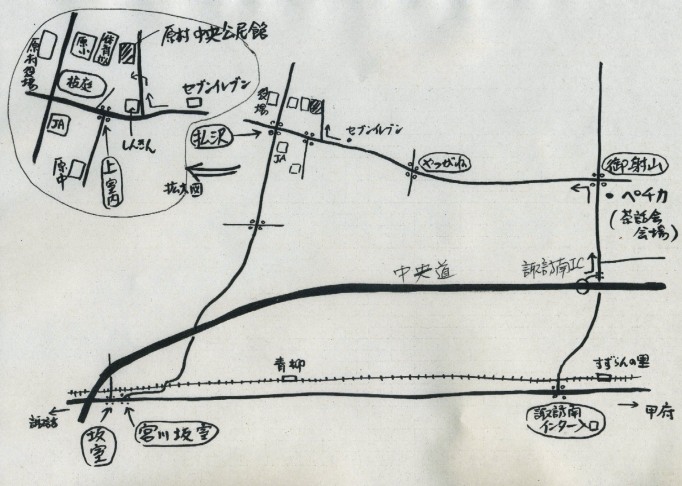 原村中央公民館
原村役場
原小
体育館
セブンイレブン
JA
しんきん
原中
上室内
拡大図
払沢
役場
セブンイレブン
JA
やつがね
御射山
ペチカ
(茶話会
会場)
中央道
諏訪南IC
青柳
すずらんの里
諏訪
坂室
宮川坂室
諏訪南
インター入口
甲府